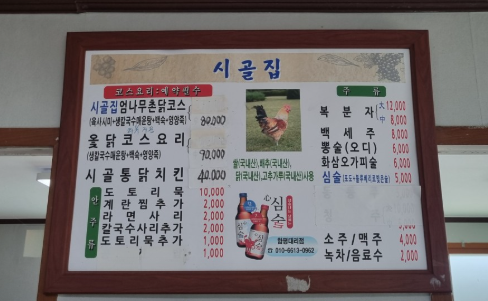 시골집
코스요리:예약필수
시골집엄나무촌닭코스
(육사시미+생칼국수매운탕+백숙+영양죽)
80,000
옻닭코스요리
(생칼국수매운탕+백숙+영양죽)
90,000
시골통닭치킨 40,000
안주류
도토리묵 10,000
계란찜추가 2,000
라면사리 2,000
칼국수사리추가 2,000
도토리묵추가 1,000
1,000
쌀(국내산),배추(국내산),
닭(국내산),고추가루(국내산)사용
주류
복분자 大 12,000
中 8,000
백세주 8,000
뽕술(오디) 6,000
화삼오가피술 6,000
심술(포도+블루베리로빚은술) 5,000
心
심술
합평대리점
☎ 010-6613-0962
소주/맥주 4,000
녹차/음료수 2,000